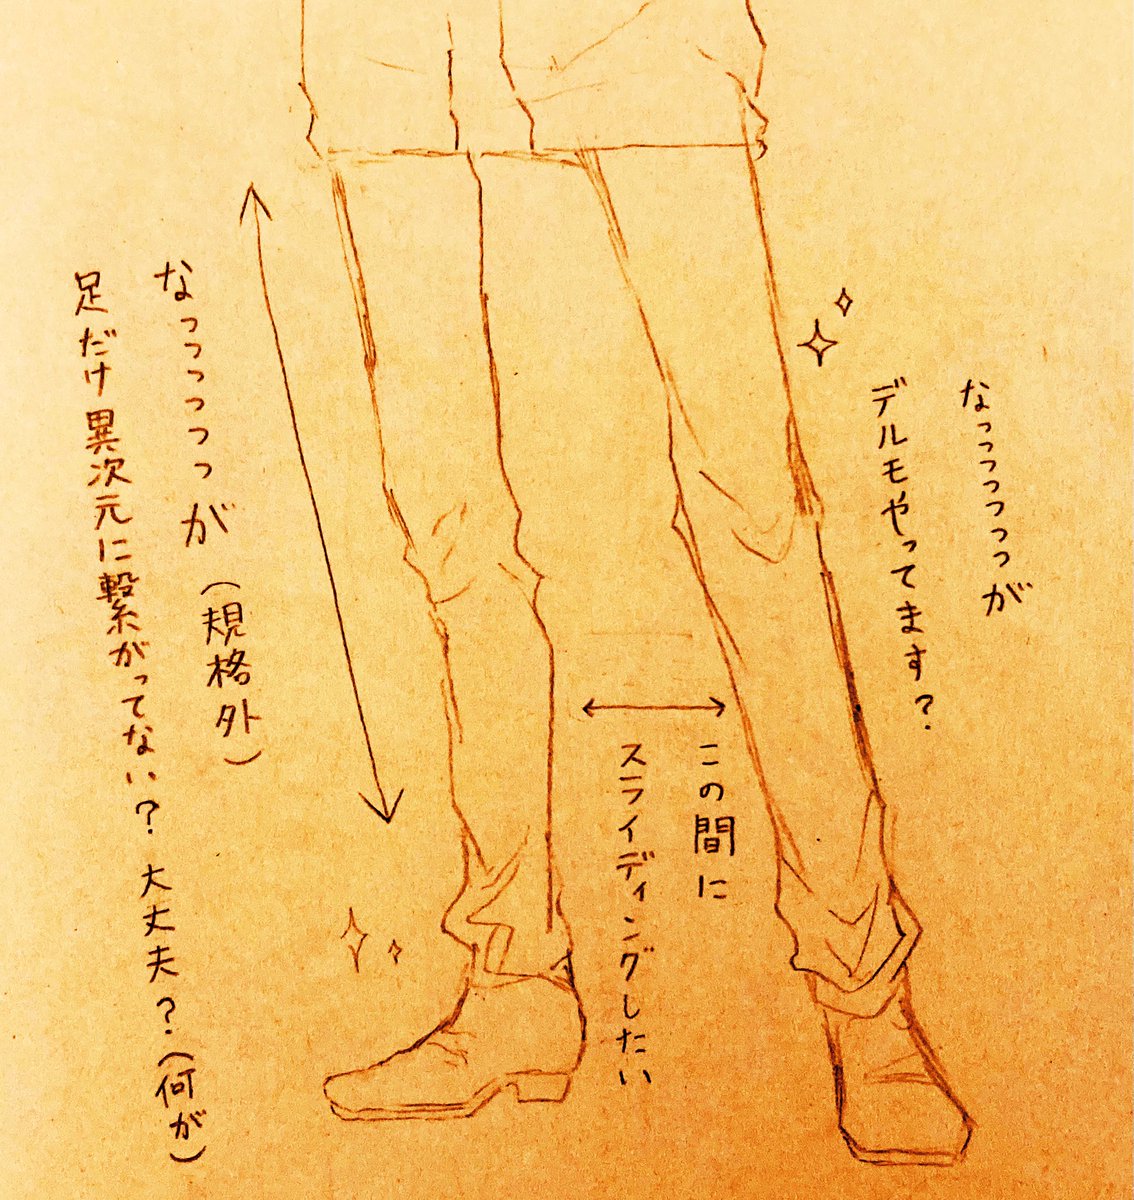 なっっっっっが
デルモやってます?
この間に
スライディングしたい
なっっっっっが(規格外)
足だけ異次元に繋がってない?大丈夫?(何が)